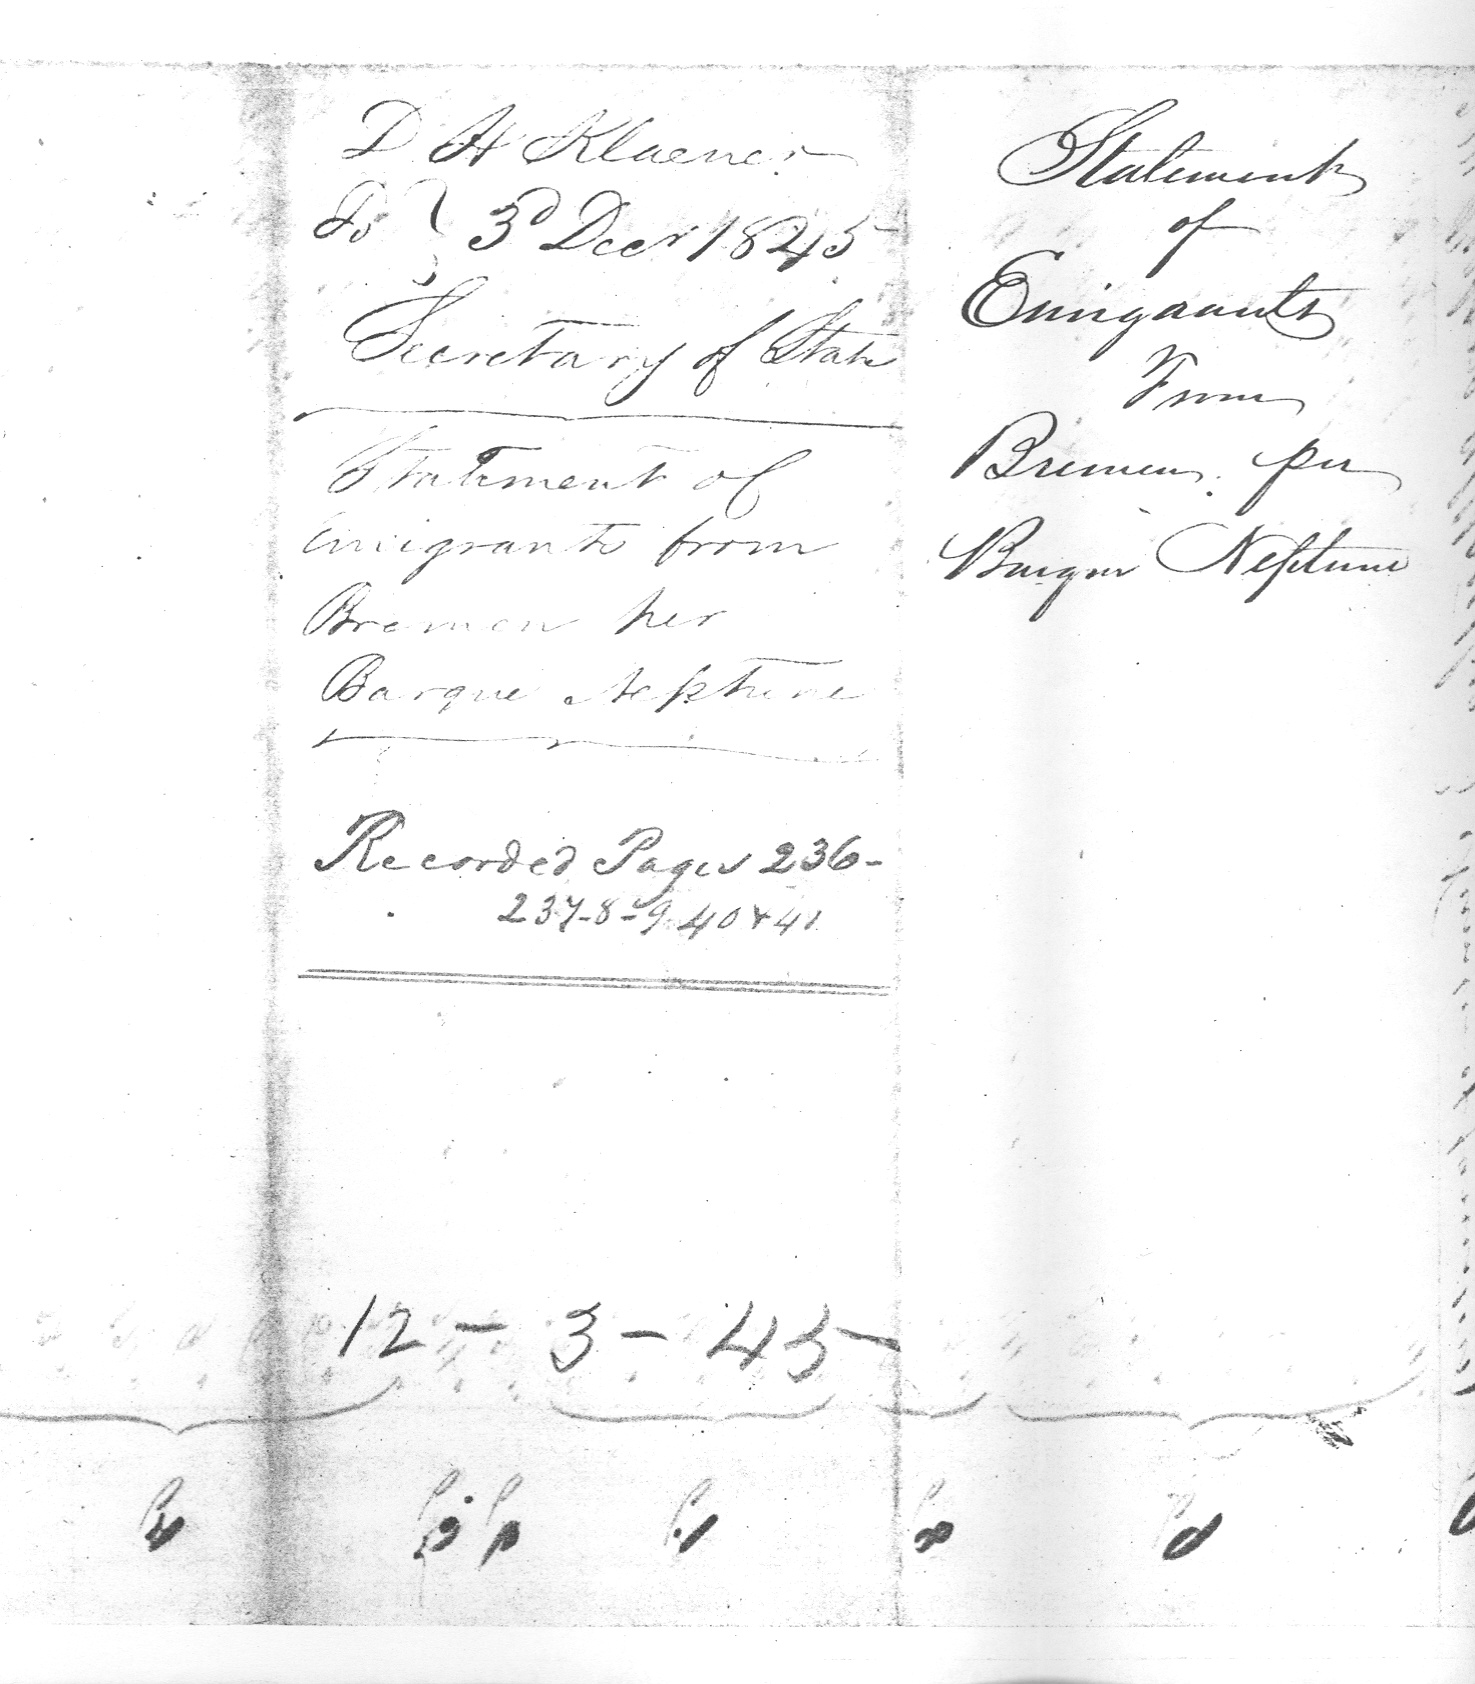 D H Klaener
To } 3d Decr 1845
Secretary of State
Statement of
emigrants from
Bremen per
Barque Neptune
Recorded Pages 236-
237-8-9-40 & 41
12 - 3 - 45
Statement
of
Emigrants
From
Bremen per
Barque Neptune